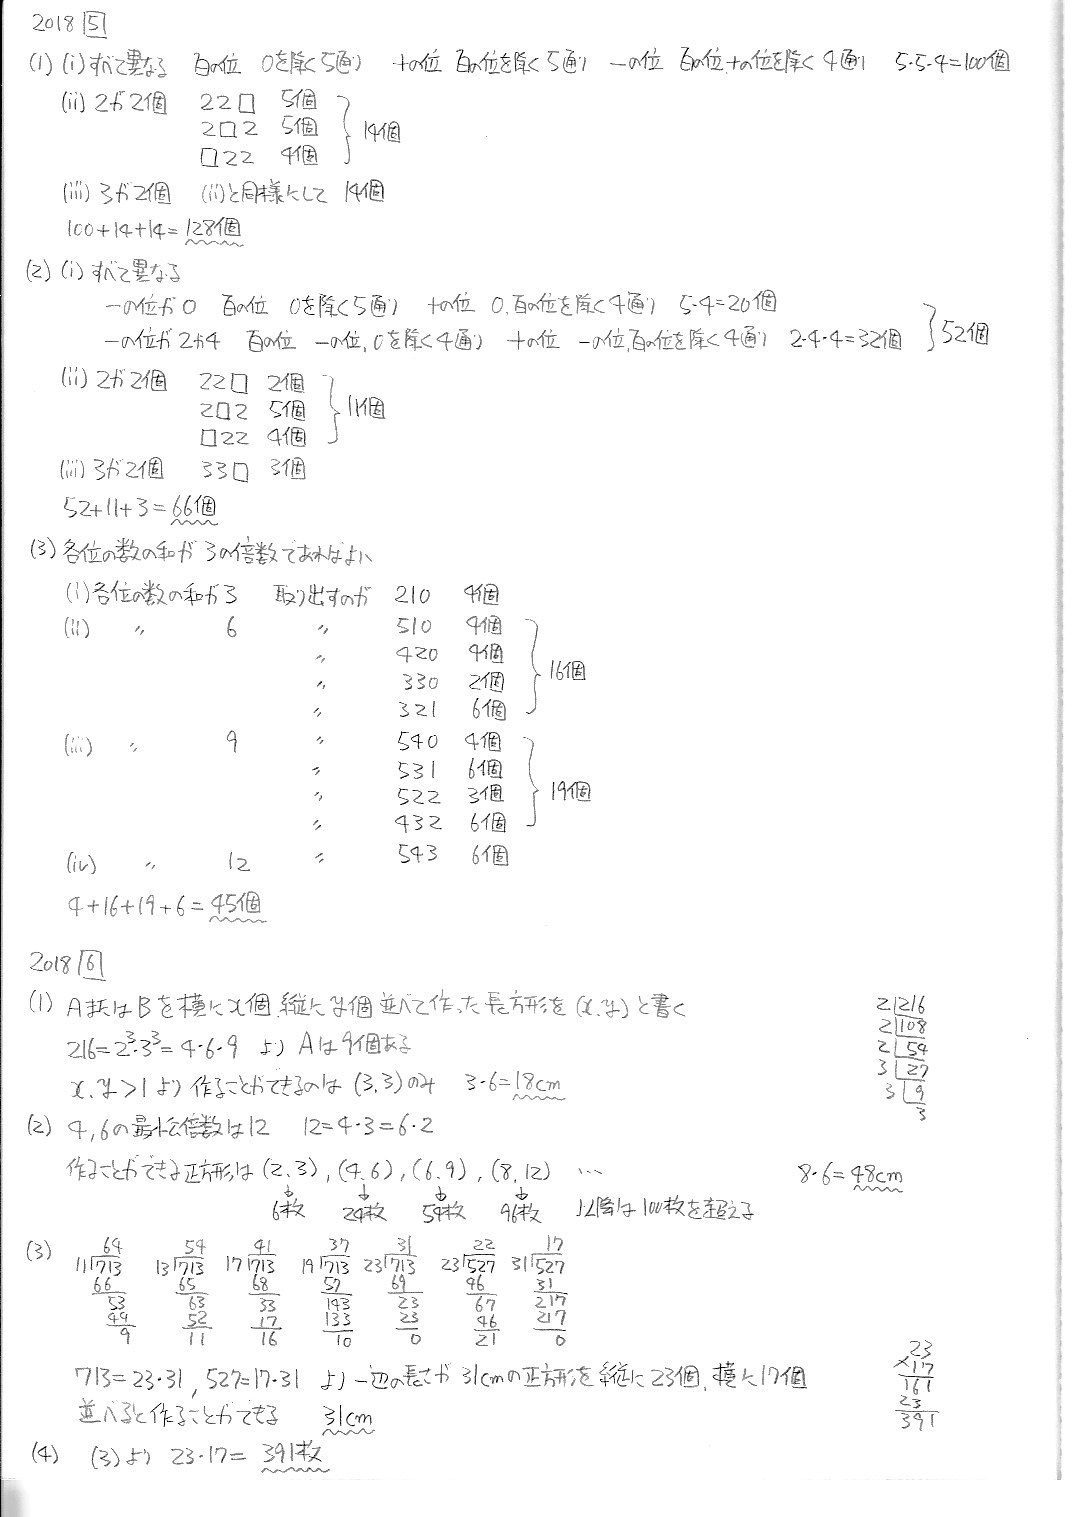 2018 5
(1) (i) すべて異なる 百の位 0を除く5通り 十の位 百の位を除く5通り 一の位 百の位,十の位を除く4通り 5·5·4=100個
(ii) 2が2個 22□ 5個
2□2 5個 14個
□22 4個
(iii) 3が2個 (ii)と同様にして 14個
100+14+14=128個
(2) (i) すべて異なる
一の位が0 百の位 0を除く5通り 十の位 0,百の位を除く4通り 5·4=20個
一の位が2か4 百の位 一の位,0を除く4通り 十の位 一の位,百の位を除く4通り 2·4·4=32個 52個
(ii) 2が2個 22□ 2個
2□2 5個 11個
□22 4個
(iii) 3が2個 33□ 3個
52+11+3=66個
(3) 各位の数の和が3の倍数であればよい
(i) 各位の数の和が3 取り出すのが 210 4個
(ii) 〃 6 〃 510 4個
〃 420 4個
〃 330 2個 16個
〃 321 6個
(iii) 〃 9 〃 540 4個
〃 531 6個
〃 522 3個 19個
〃 432 6個
(iv) 〃 12 〃 543 6個
4+16+19+6=45個
2018 6
(1) AまたはBを横にx個,縦にy個並べて作った長方形を(x,y)と書く
216=2³·3³=4·6·9 より Aは9個ある
x,y>1より作ることができるのは(3,3)のみ 3·6=18cm
2|216
2|108
2|54
3|27
3|9
3
(2) 4,6の最小公倍数は12 12=4·3=6·2
作ることができる正方形は(2,3),(4,6),(6,9),(8,12) … 8·6=48cm
↓ ↓ ↓ ↓
6枚 24枚 54枚 96枚 以降は100枚を超える
(3) 64 54 41 37 31 22 17
11)713 13)713 17)713 19)713 23)713 23)527 31)527
66 65 68 57 69 46 31
53 63 33 143 23 67 217
44 52 17 133 23 46 217
9 11 16 10 0 21 0
713=23·31,527=17·31 より一辺の長さが31cmの正方形を縦に23個,横に17個
並べると作ることができる 31cm
23
×17
161
23
391
(4) (3)より 23·17=391枚